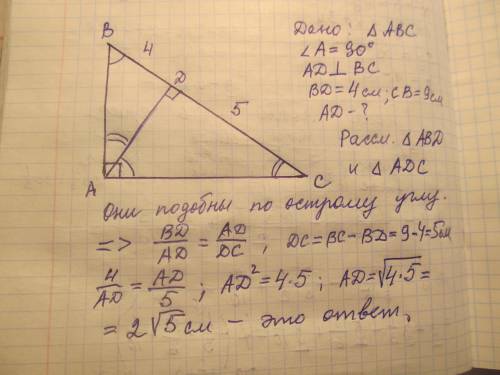 B
4
D
5
A
C
Дано: △ABC
∠A = 90°
AD ⊥ BC
BD = 4 см; CB = 9 см
AD - ?
Рассм. △ABD
и △ADC
Они подобны по острому углу.
=> BD/AD = AD/DC; DC = BC - BD = 9 - 4 = 5 см
4/AD = AD/5; AD² = 4·5; AD = √4·5 =
= 2√5 см - это ответ.